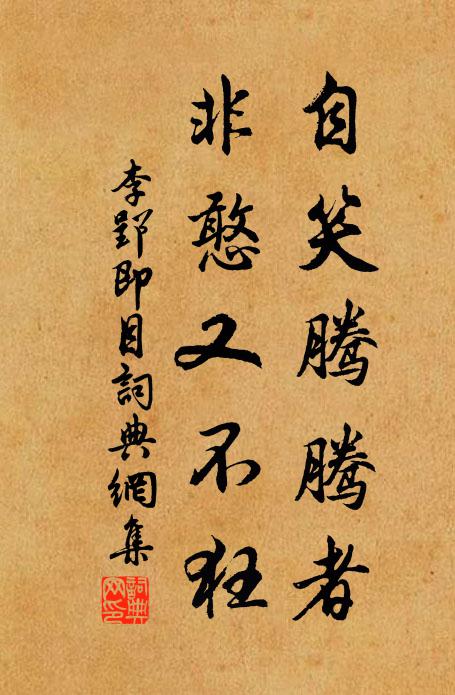 自笑騰騰者
非憨又不狂
李郢即目詞典網集
詞典網印